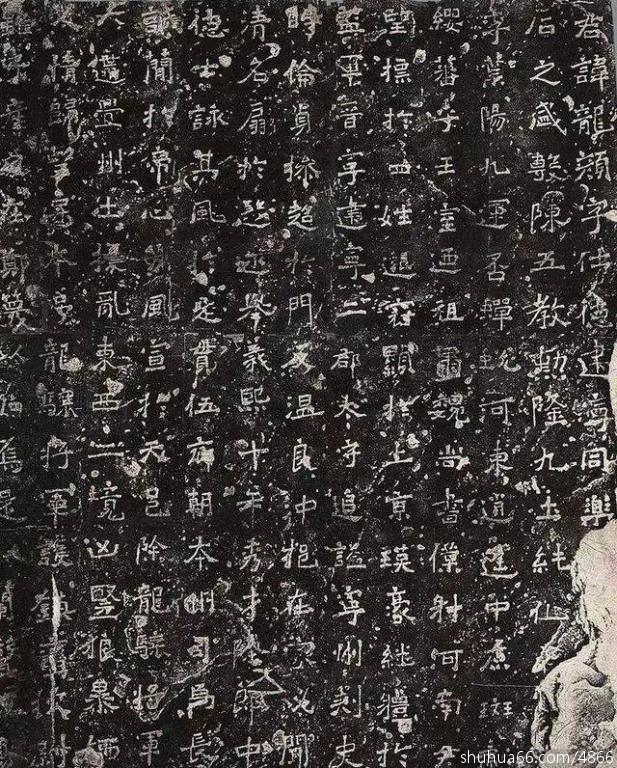 君諱龍顏字仕德建寧同樂
后之盛敷陳五教勳隆九土純化
季葉陽九運否蟬蛻河東逍遙中原班
纓蕃乎王室迺祖肅魏尚書僕射河南尹
望標於四姓邈冠顯於上京瑛豪繼體於
監軍晉寧建寧二郡太守追諡寧州刺史
時倫貞操超於門友溫良沖挹在家必聞
清名扇於遐迩舉義熙十年秀才除郎中
德士詠其風於是貫伍鄉朝本州司馬長
誠簡於帝心芳風宣於天邑除龍驤將軍
六遘釁州土擾亂東西二境凶豎狼暴緬
人情歸望遷本號龍驤將軍護鎮蠻校尉
shuhua66.com/4866